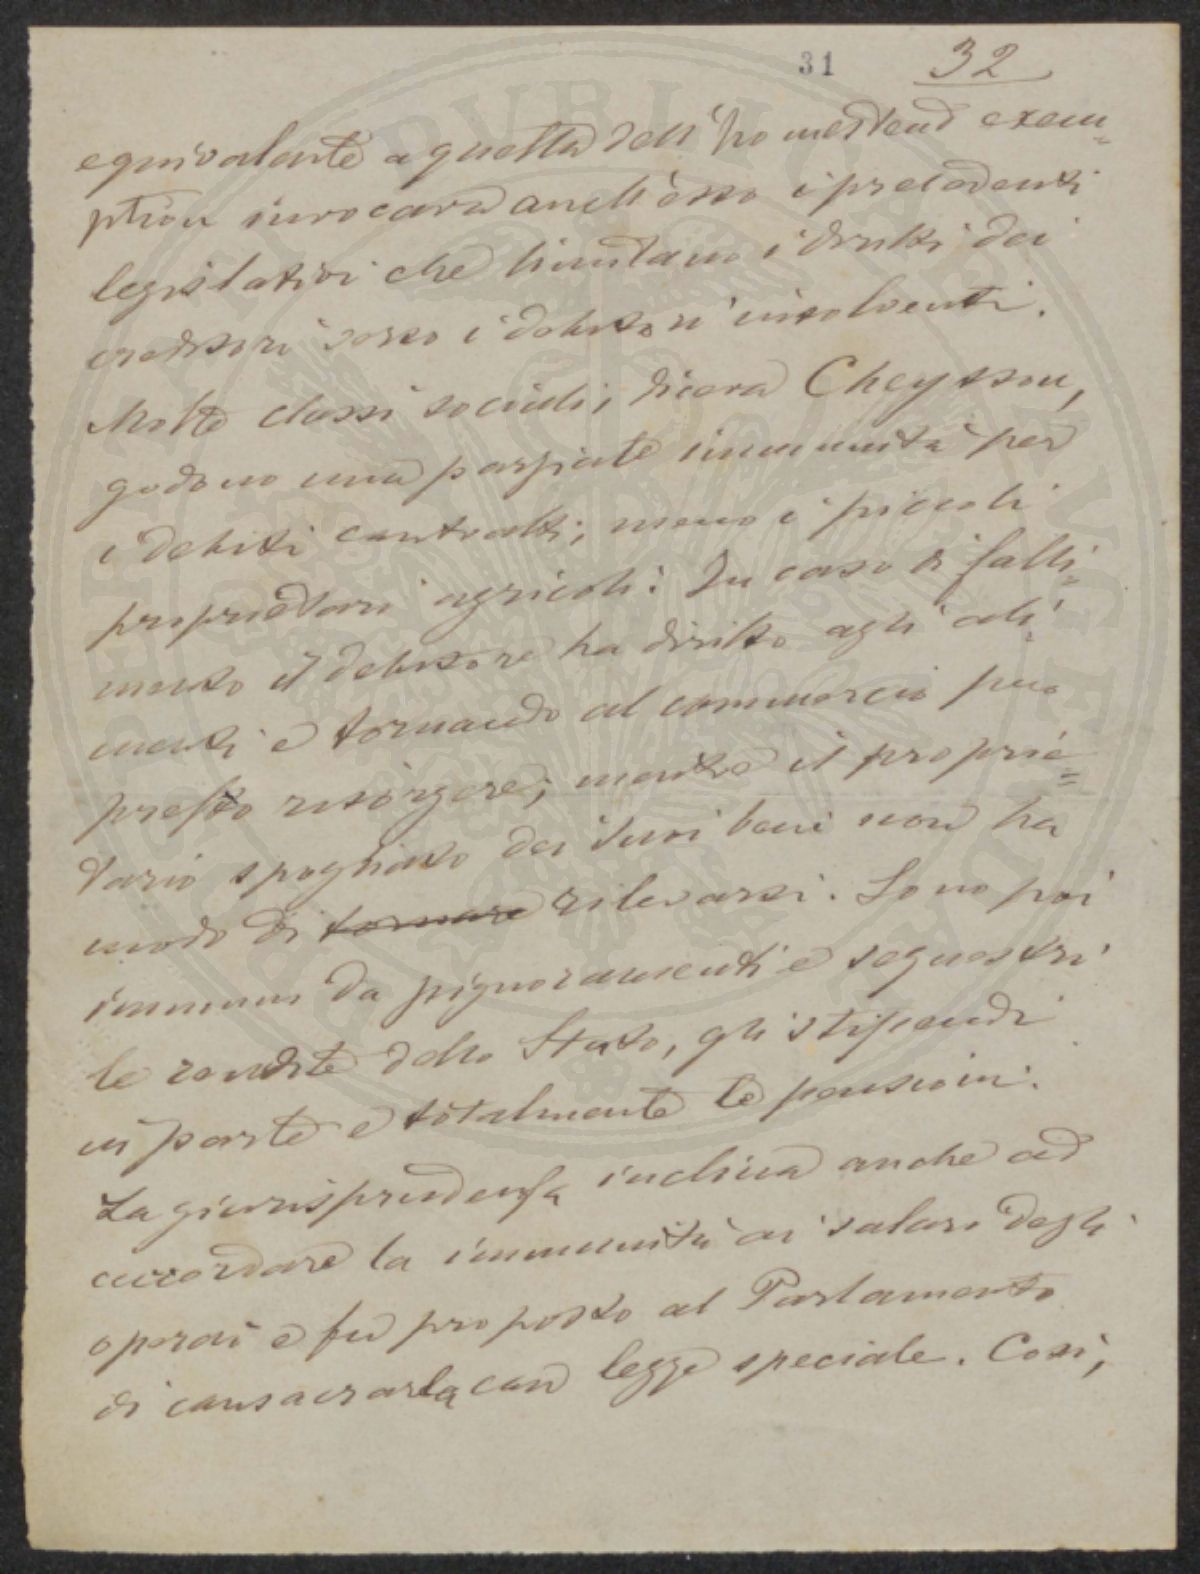 31 32
equivalente a quella dell'homestead exem=
ption invocava anch'esso i precedenti
legislativi che limitano i diritti dei
creditori verso i debitori insolventi.
Molte classi sociali, diceva Cheysson,
godono una parziale immunità per
i debiti contratti, meno i piccoli
proprietari agricoli: In caso di falli=
mento il debitore ha diritto agli ali=
menti e tornando al commercio può
presto risorgere; mentre il proprie=
tario spogliato dei suoi beni non ha
modo di tornare rilevarsi. Sono poi
immuni da pignoramenti e sequestri
le rendite dello Stato, gli stipendi
in parte e totalmente le pensioni.
La giurisprudenza inclina anche ad
accordare la immunità ai salari degli
operai e fu proposto al Parlamento
di consacrarla con legge speciale. Così,